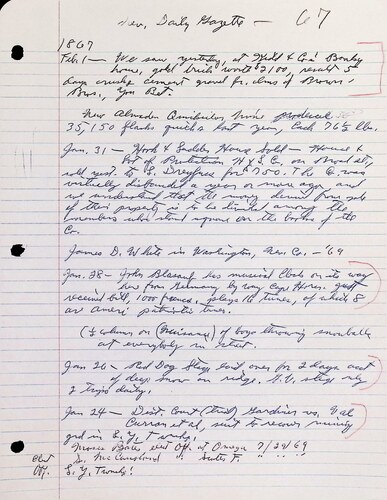 Nev. Daily Gazette — 67
1867
Feb. 1 — We saw yesterday, at Kidd & Co's Banking
house, gold brick worth $2100, result 5
days crushing cement gravel fr. claim of Brown
Bros., You Bet.
New Almaden Quicksilver mine produced
35,150 flasks quicks last year, each 76½ lbs.
Jan. 31 — Hook & Ladder House Sold — House &
lot of Protection H & L Co. on Broad st,
sold yest. to L. Dreyfuss for $750. The Co. was
virtually disbanded a year or more ago and
we understand that the money derived from sale
of their property is to be divided among the
members who stand square on the books of the
Co.
James D. White in Washington, Nev. Co. — '69
Jan. 28 — John has musical clock on its way
here from Germany by way Cape Horn. Just
received bill, 1000 francs, plays 10 tunes, of which 8
are Amer. patriotic tunes.
(½ column on (nuisance) of boys throwing snowballs
at everybody in street.
Jan 26 — Red Dog Stage laid over for 2 days acct
of deep snow on ridge. G.V. stages only
2 trips daily.
Jan 24 — Dist. Court (trial) Gardiner vs. Val
Curran et al, suit to recover mining
grd in S. Y. Tweeds.
Bates elect Off. at Omega 7/24/69
Elect S. McCausland " Santa F. " " "
Off. S. Y. Tweeds!